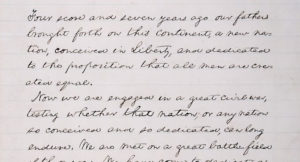 Four score and seven years ago our fathers
brought forth on this continent, a new na-
tion, conceived in Liberty, and dedicated
to the proposition that all men are cre-
ated equal.
Now we are engaged in a great civil war,
testing whether that nation, or any nation
so conceived and so dedicated, can long
endure. We are met on a great battle-field